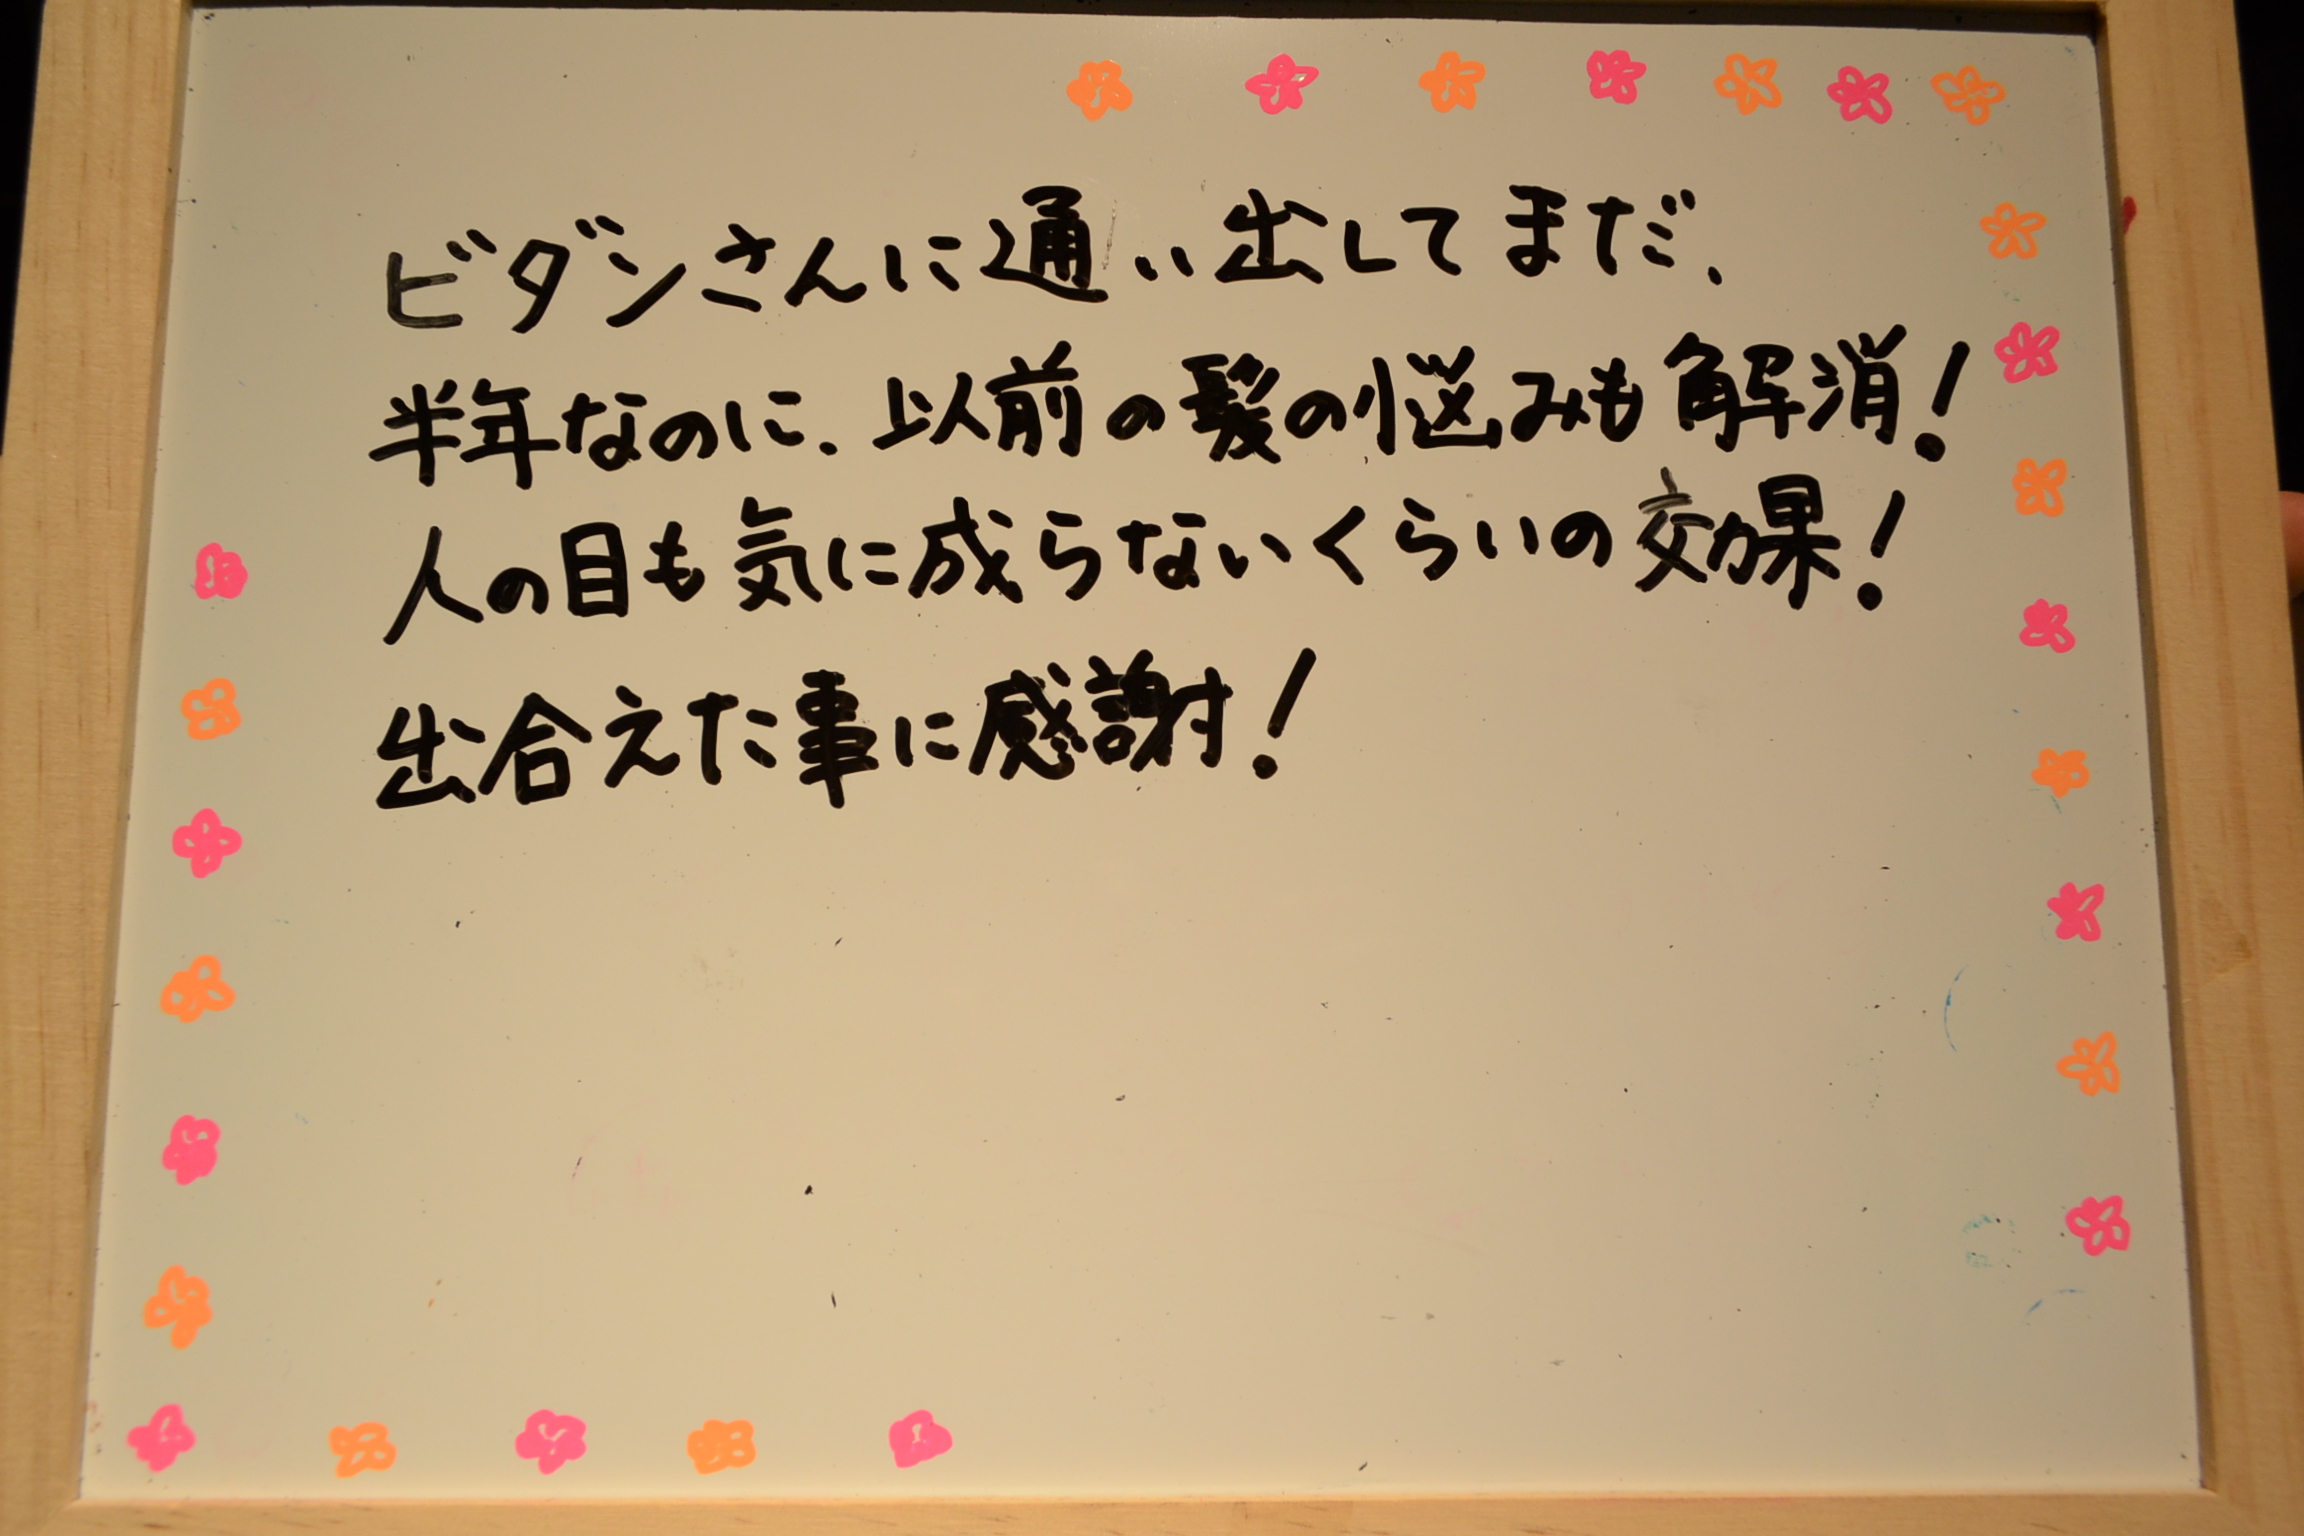 ビダンさんに通い出してまだ、
半年なのに、以前の髪の悩みも解消!
人の目も気に成らないくらいの効果!
出合えた事に感謝!